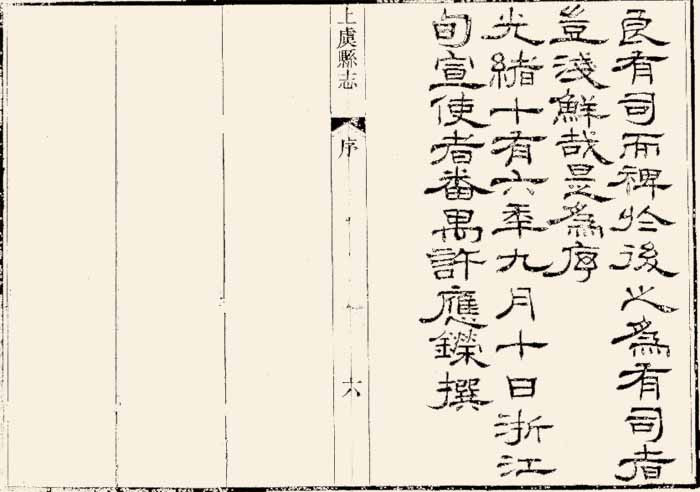 良有司而裨於後之為有司者
豈淺鮮哉是為序
光緒十有六年九月十日浙江
旬宣使者番禺許應鑅撰
上虞縣志
序
六